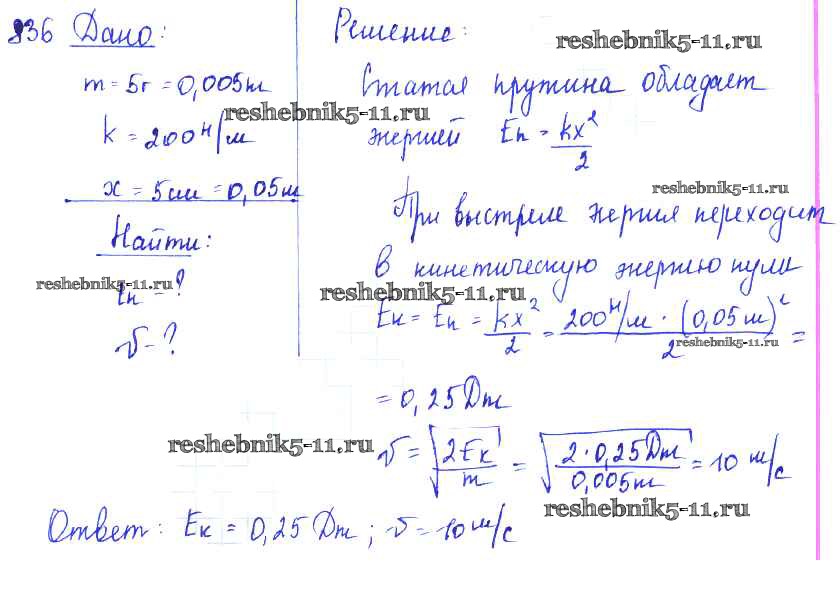 836 Дано:
m = 5г = 0,005кг
k = 200 Н/м
x = 5см = 0,05м
Найти:
Eк - ?
v - ?
Решение:
Сжатая пружина обладает
энергией Eп = kx²/2
При выстреле энергия переходит
в кинетическую энергию пули
Eк = Eп = kx²/2 = 200 Н/м · (0,05 м)²/2 =
= 0,25 Дж
v = √(2Eк/m) = √(2·0,25Дж/0,005кг) = 10 м/с
Ответ: Eк = 0,25 Дж; v = 10 м/с
reshebnik5-11.ru
reshebnik5-11.ru
reshebnik5-11.ru
reshebnik5-11.ru
reshebnik5-11.ru
reshebnik5-11.ru
reshebnik5-11.ru
reshebnik5-11.ru